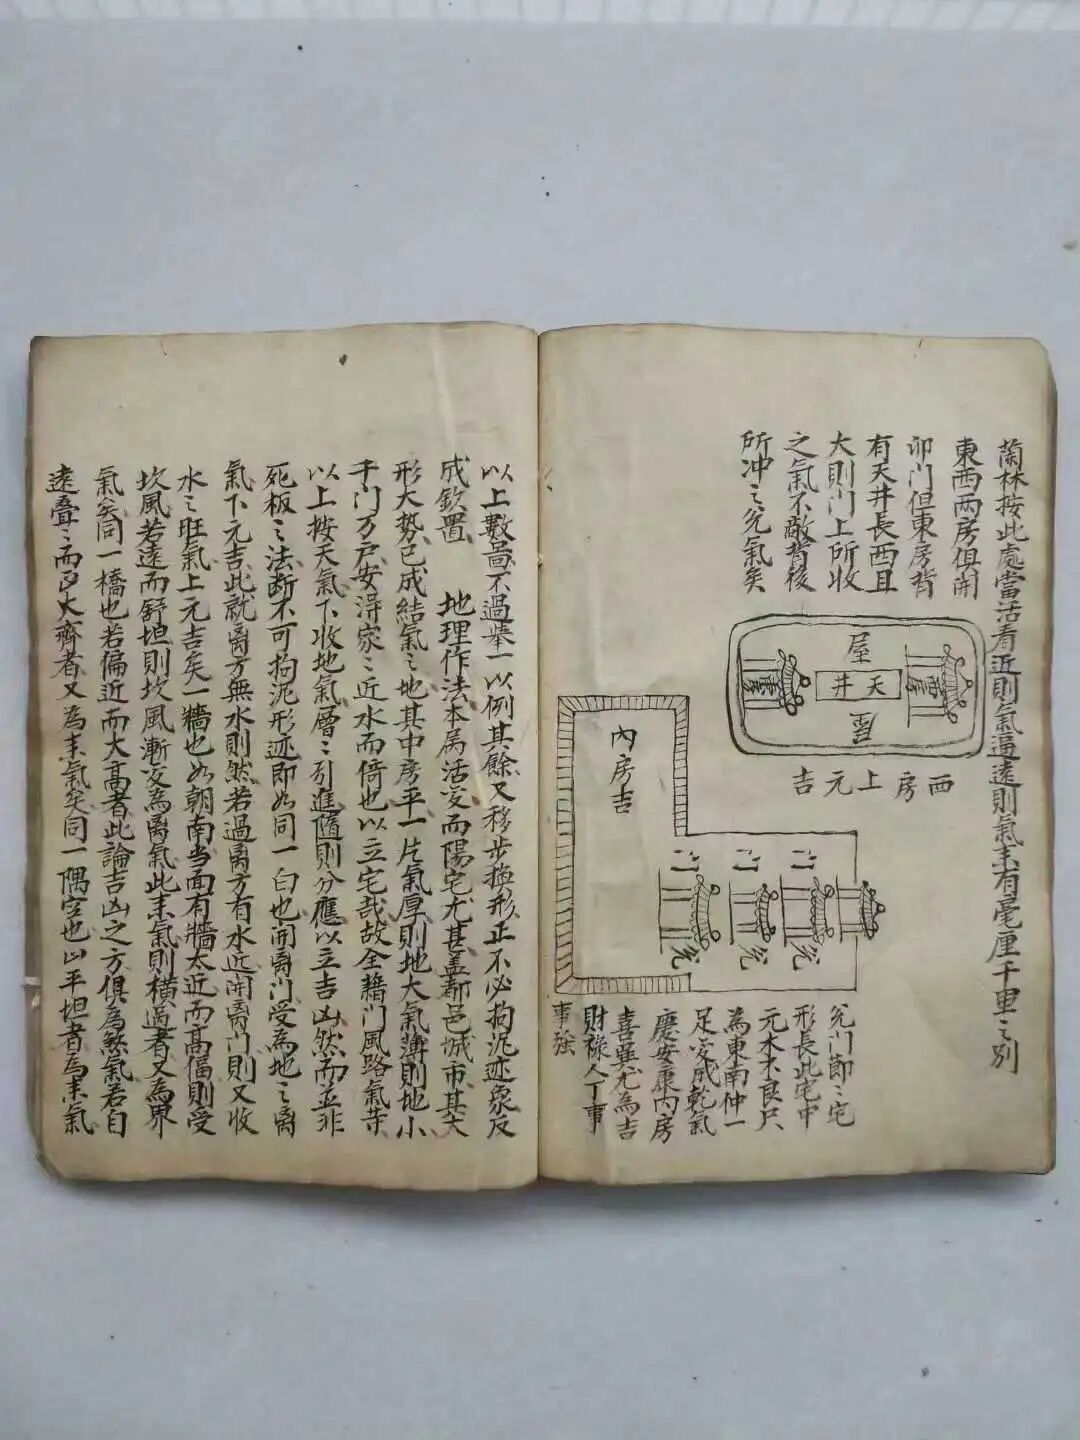 蘭林按此處當活看近則氣逼遠則氣耒有毫厘千里之別
東西兩房俱開
卯门但東房背
有天井長西且
大則门上所收
之氣不敵背後
所冲之兊氣矣
屋
天井
雪
西房上元吉
內房吉
门
门
门
兊
兊
兊
兊门節〻宅
形長此宅中
元木不良尺
為東南仲一
足変成乾氣
慶安康内房
喜巽尤為吉
財祿人丁事
事強
以上數啚不過舉一以例其餘又移步換形正不必拘泥迹象反
成欽置 地理作法本属活変而陽宅尤甚盖都邑城市其大
形大势已成結氣之地其中房平一片氣厚則地大氣薄則地小
千门万戶安淂家〻近水而倚也以立宅哉故全藉门風路氣等
以上按天氣下收地氣層〻引進隨則分應以立吉凶然而並非
死板之法断不可拘泥形迹即如同一白也闲离门受為地之离
氣下元吉此就离方無水則然若過离方有水近闲离门則又收
水之旺氣上元吉矣一牆也如朝南当面有牆太近而高偪則受
坎風若遠而舒坦則坎風漸変為离氣此耒氣則橫過者又為界
氣矣同一橋也若偏近而大高者此論吉凶之方俱為煞氣若自
遠疊〻而大齊者又為耒氣矣同一隅空也山平坦者為耒氣